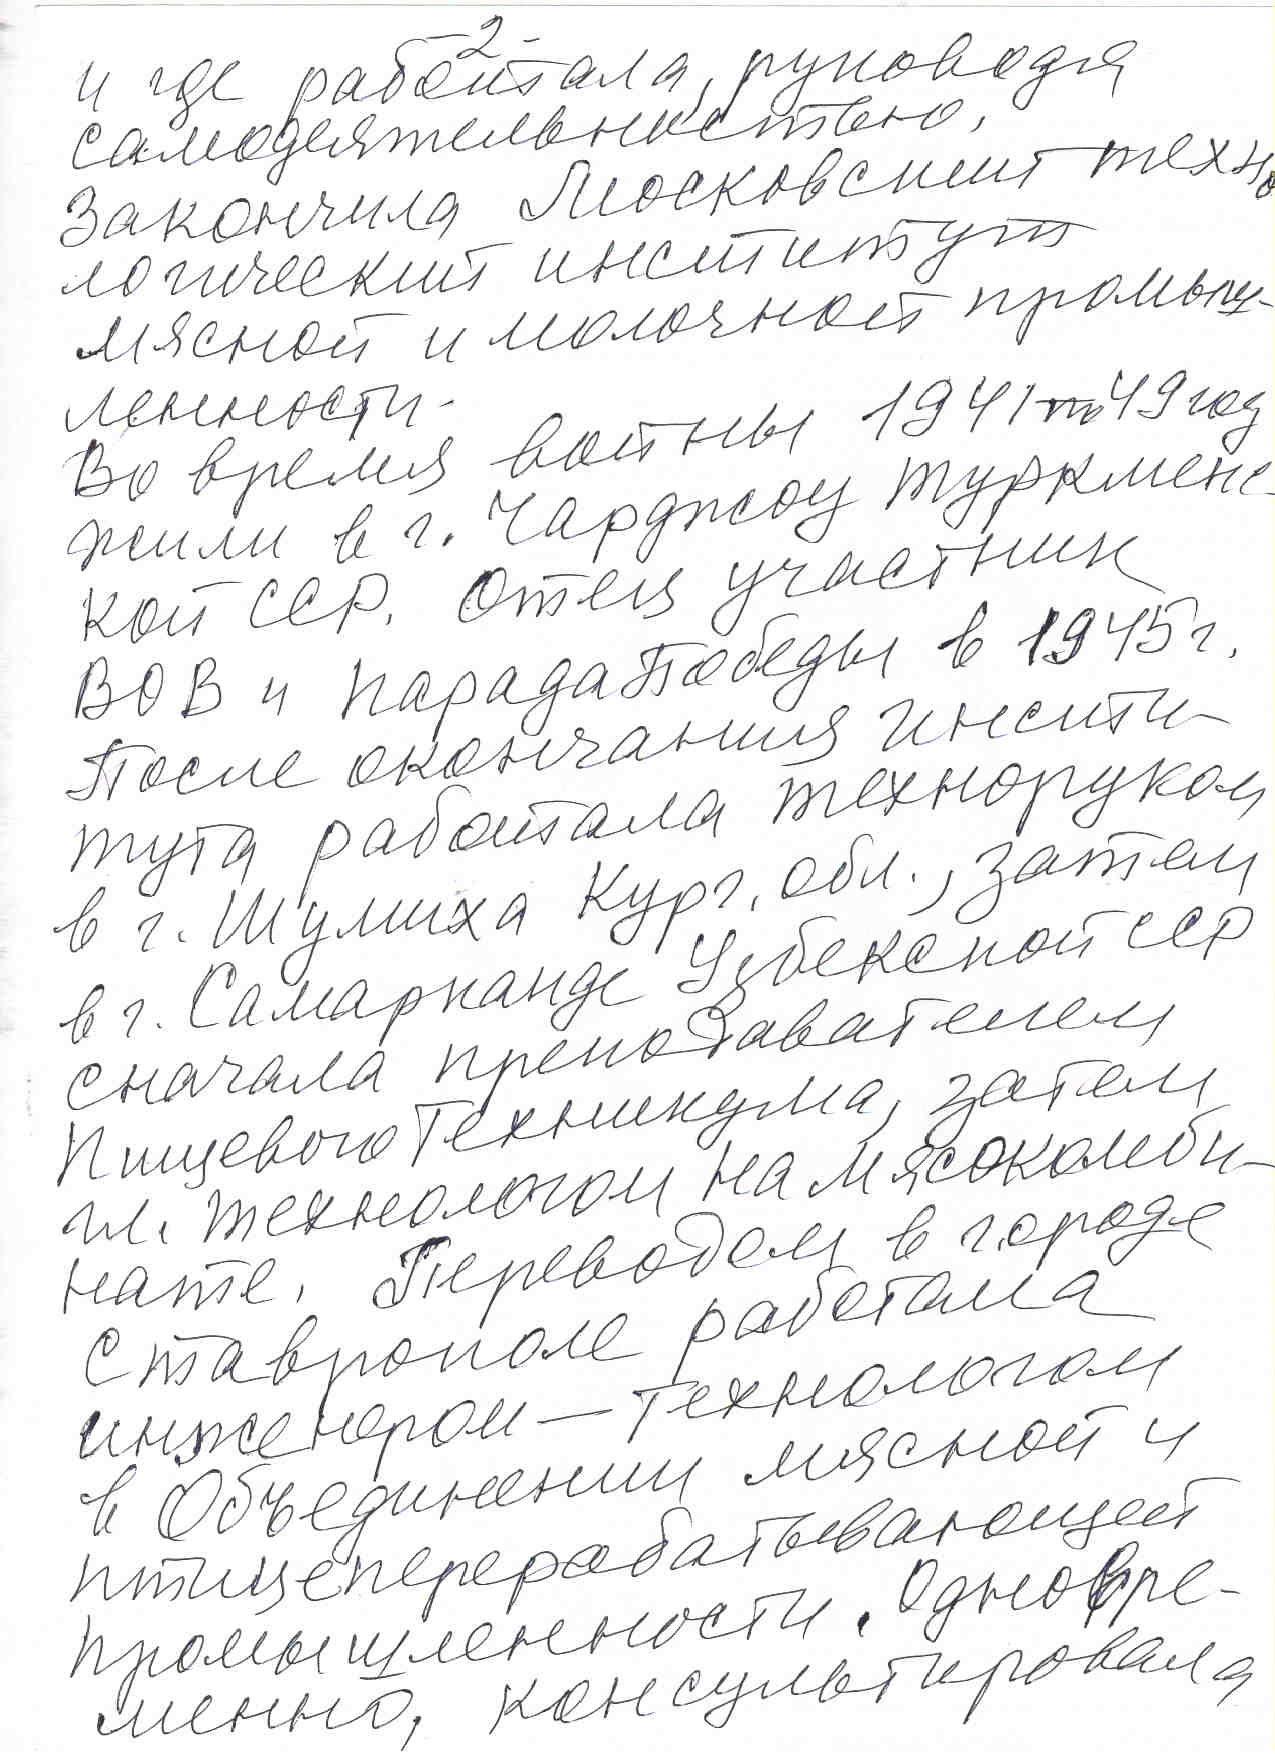 2-
и где работала, руководя
самодеятельностью.
Закончила Московский техно
логический институт
мясной и молочной промыш-
ленности.
Во время войны 1941 по 49 год
жили в г. Чарджоу Туркменс-
кой ССР. Отец участник
ВОВ и Парада Победы в 1945 г.
После окончания инсти-
тута работала техноруком
в г. Шумиха Кург. обл., затем
в г. Самарканде Узбекской ССР
сначала преподавателем
Пищевого Техникума, затем
гл. технологом на мясокомби-
нате. Переводом в городе
Ставрополе работала
инженером — технологом
в Объединении мясной и
птицеперерабатывающей
промышленности. Одновре-
менно, консультировала